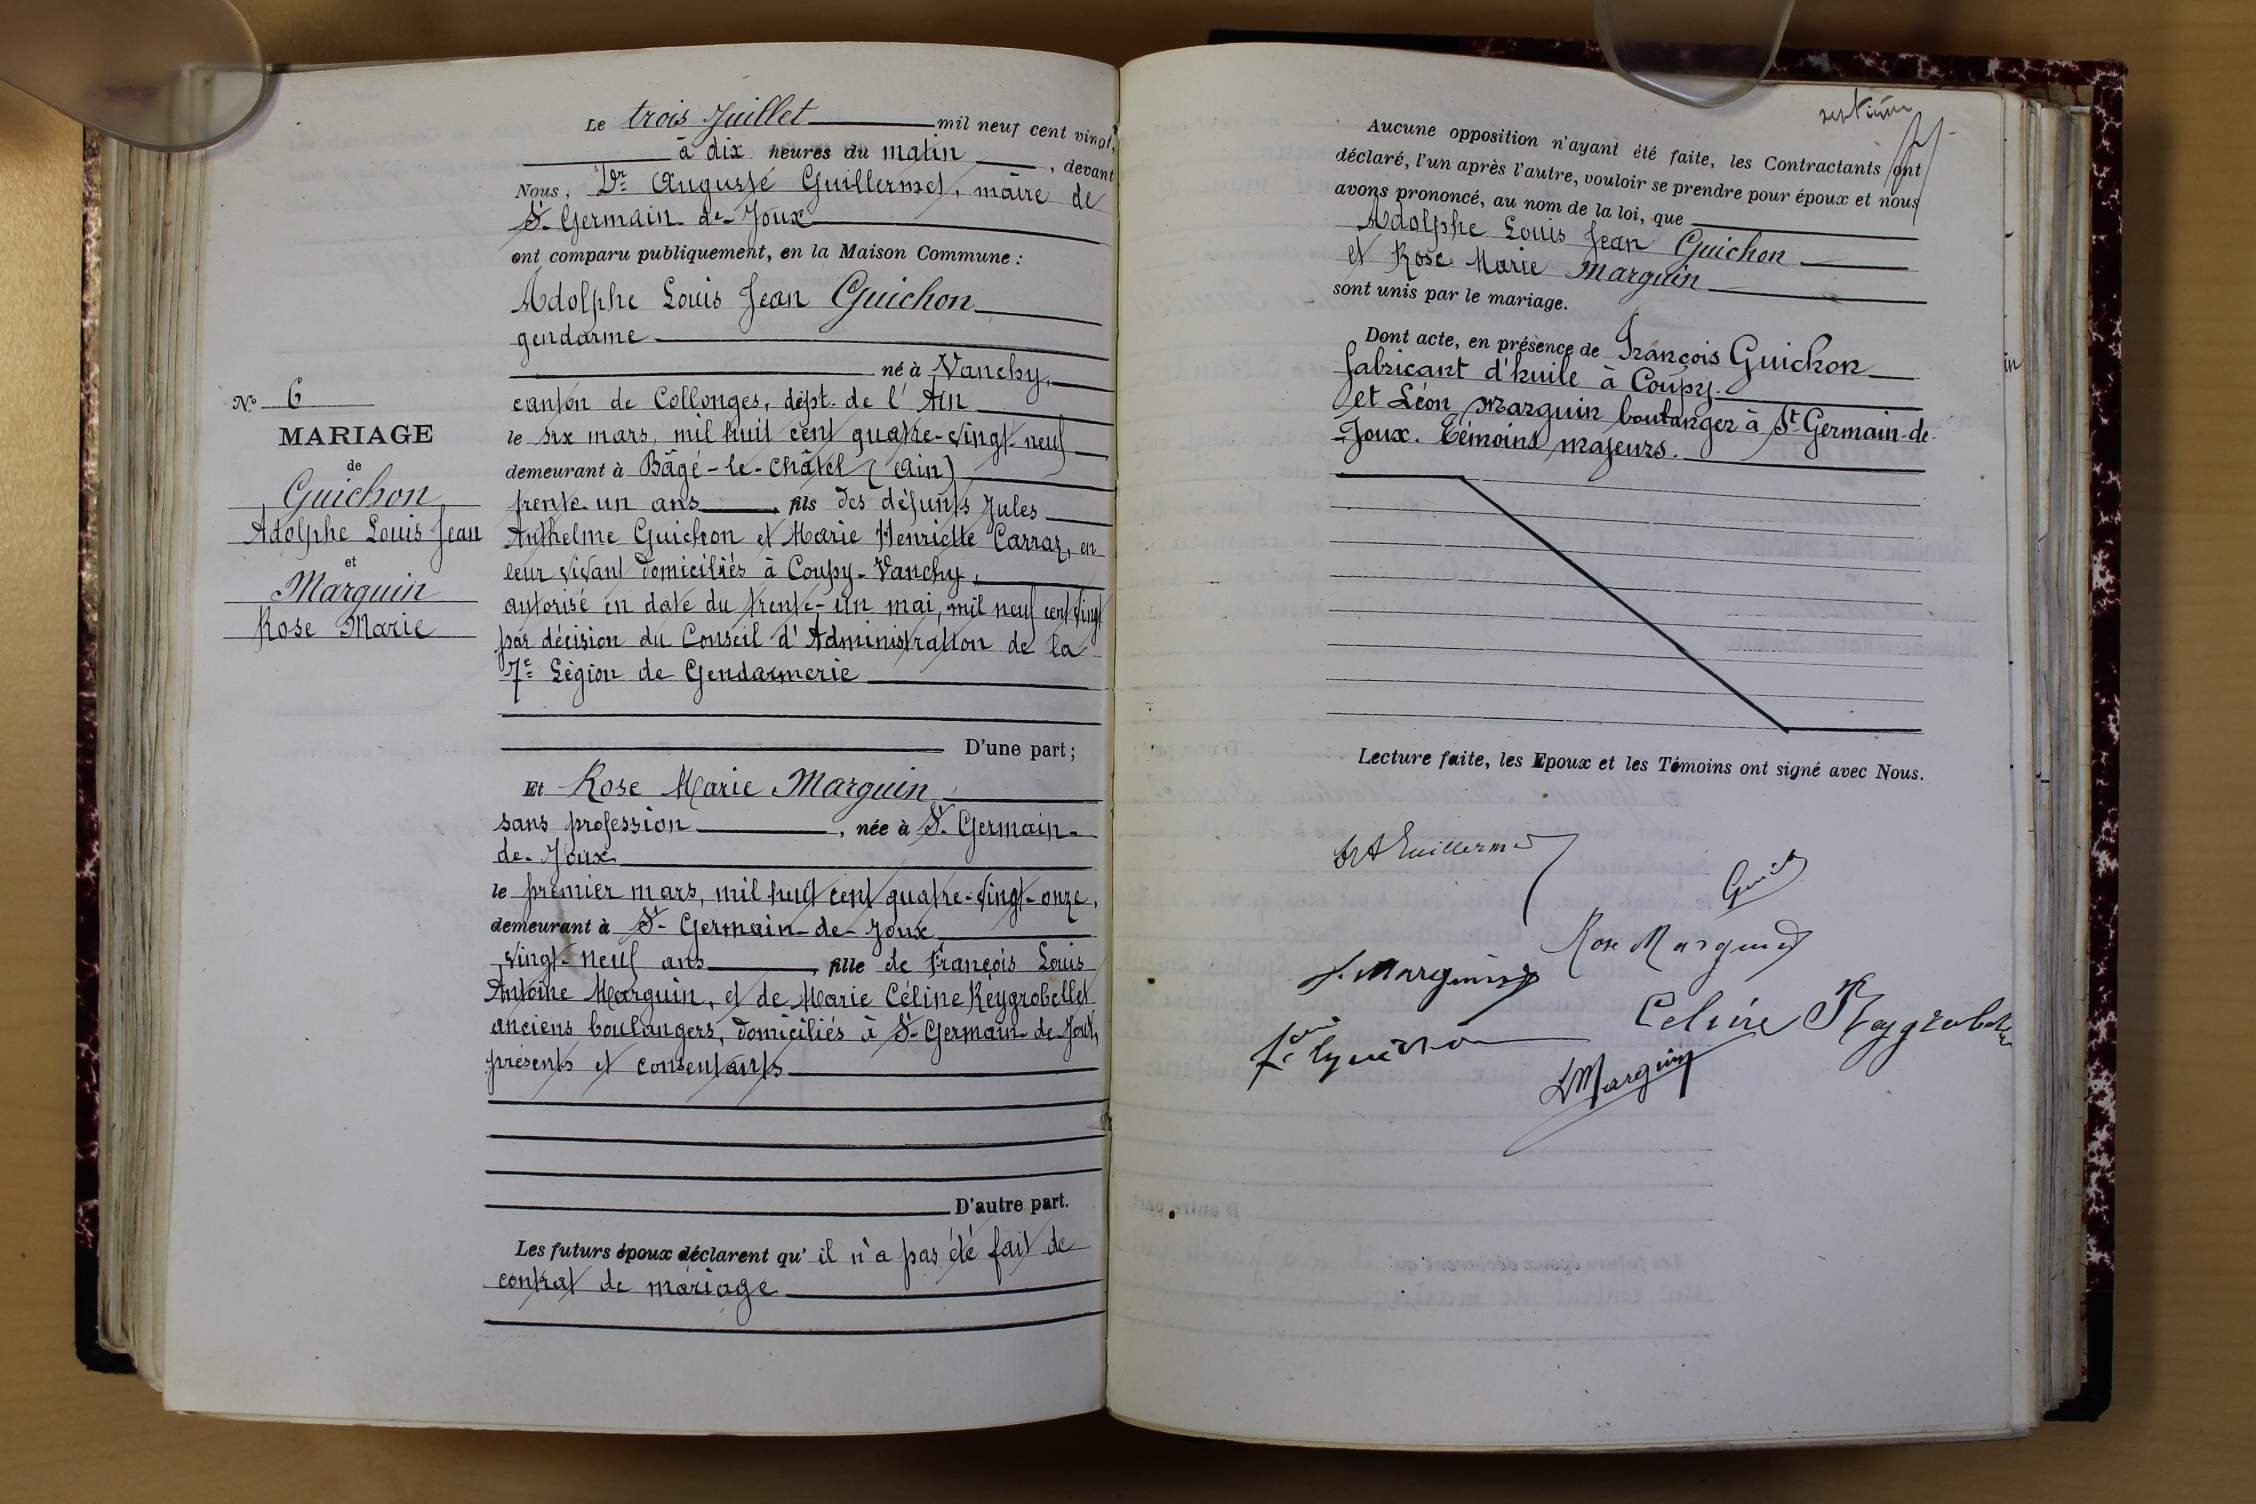 Le trois Juillet mil neuf cent vingt,
à dix heures du matin, devant
Nous, Dr Auguste Guillermet, maire de
St Germain-de-Joux
ont comparu publiquement, en la Maison Commune :
Adolphe Louis Jean Guichon
gendarme
né à Vanchy,
canton de Collonges, dépt. de l'Ain
le six mars, mil huit cent quatre-vingt-neuf
demeurant à Bâgé-le-Châtel (Ain)
trente-un ans, fils des défunts Jules
Anthelme Guichon et Marie Henriette Carraz, en
leur vivant domiciliés à Coupy-Vanchy,
autorisé en date du trente-un mai, mil neuf cent vingt
par décision du Conseil d'Administration de la
7e Légion de Gendarmerie
D'une part ;
Et Rose Marie Marguin
sans profession, née à St Germain-
de-Joux
le premier mars, mil huit cent quatre-vingt-onze,
demeurant à St-Germain-de-Joux
vingt-neuf ans, fille de François Louis
Antoine Marguin, et de Marie Céline Reygrobellet
anciens boulangers, domiciliés à St-Germain-de-Joux,
présents et consentants
D'autre part.
Les futurs époux déclarent qu'il n'a pas été fait de
contrat de mariage
No 6
MARIAGE
de
Guichon
Adolphe Louis Jean
et
Marguin
Rose Marie
septième
Aucune opposition n'ayant été faite, les Contractants ont
déclaré, l'un après l'autre, vouloir se prendre pour époux et nous
avons prononcé, au nom de la loi, que
Adolphe Louis Jean Guichon
et Rose Marie Marguin
sont unis par le mariage.
Dont acte, en présence de François Guichon
fabricant d'huile à Coupy.
et Léon Marguin boulanger à St Germain-de-
Joux. Témoins majeurs.
Lecture faite, les Epoux et les Témoins ont signé avec Nous.
Dr A Guillermet
Rose Marguin
Marguin
Celine Reygrobellet
Guichon
L Marguin